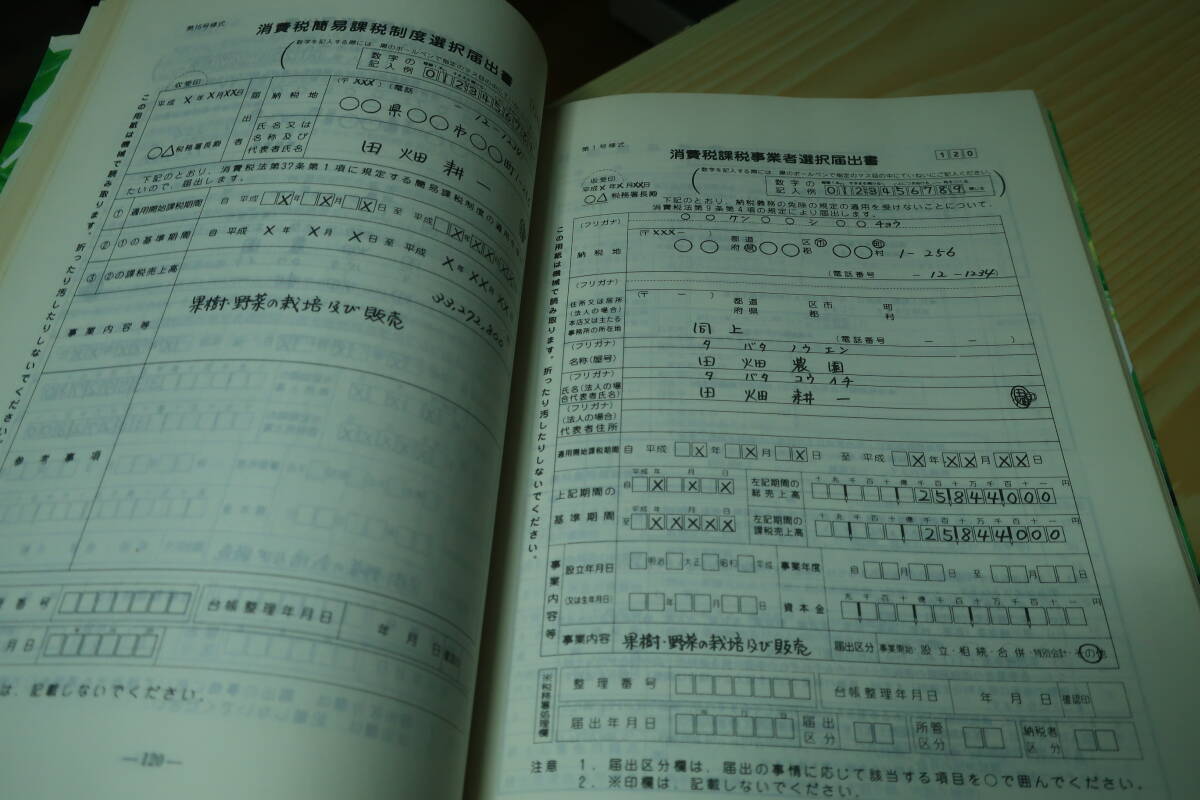 第16号様式
消費税簡易課税制度選択届出書
数字の
記入例
収受印
平成 X年X月XX日
○△税務署長殿
届出者
納税地
(〒XXX-)
(電話 - 12-1234)
○○県○○市○○町
氏名又は
名称及び
代表者氏名
田畑耕一
下記のとおり、消費税法第37条第1項に規定する簡易課税制度の適用を
たいので、届出します。
① 適用開始課税期間 自 平成 X年 X月 X日 至 平成 X年XX月XX
② ①の基準期間 自 平成 X年 X月 X日 至 平成 X年XX月XX
③ ②の課税売上高 33,272,800
事業内容等 果樹・野菜の栽培及び販売
参考事項
番号
台帳整理年月日 年 月 日
月日
は、記載しないでください。
この用紙は機械で読み取ります。折ったり汚したりしないでください。
—120—
第1号様式
消費税課税事業者選択届出書
120
(数字を記入する際には、黒のボールペンで指定のマス目の中にていねいにご記入ください)
数字の
記入例 0123456789
収受印
平成X年X月XX日
○△税務署長殿
下記のとおり、納税義務の免除の規定の適用を受けないことについて、
消費税法第9条第4項の規定により届出します。
(フリガナ) ○○ケン○○シ○○チョウ
納税地 (〒XXX-) ○○ 都道府県 ○○ 区市郡 ○○ 町村 1-256
(電話番号 -12-1234)
(フリガナ)
住所又は居所
(法人の場合)
本店又は主たる
事務所の所在地
(〒 - ) 都道府県 区市郡 町村
同上
(電話番号 - - )
(フリガナ) タバタノウエン
名称(屋号) 田畑農園
(フリガナ) タバタコウイチ
氏名(法人の場
合代表者氏名) 田畑耕一
(フリガナ)
(法人の場合)
代表者住所
適用開始課税期間 自 平成 X年 X月 X日 至 平成 X年XX月XX日
上記期間の
基準期間
平成 年 月 日
自 X X X
左記期間の
総売上高
十兆千百十億千百十万千百十一円
25844000
平成 年 月 日
至 XXXXX
左記期間の
課税売上高
十兆千百十億千百十万千百十一円
25844000
事業内容等
設立年月日
(又は生年月日)
明治 大正 昭和 平成
年 月 日
事業年度 自 月 日 至 月 日
資本金 十兆千百十億千百十万千百十一円
事業内容 果樹・野菜の栽培及び販売
届出区分 事業開始・設立・相続・合併・特別会計・その他
※税務署処理欄
整理番号
台帳整理年月日 年 月 日 確認印
届出年月日 年 月 日
届出
区分
所管
区分
納税者
区分
注意 1. 届出区分欄は、届出の事情に応じて該当する項目を○で囲んでください。
2. ※印欄は、記載しないでください。
この用紙は機械で読み取ります。折ったり汚したりしないでください。